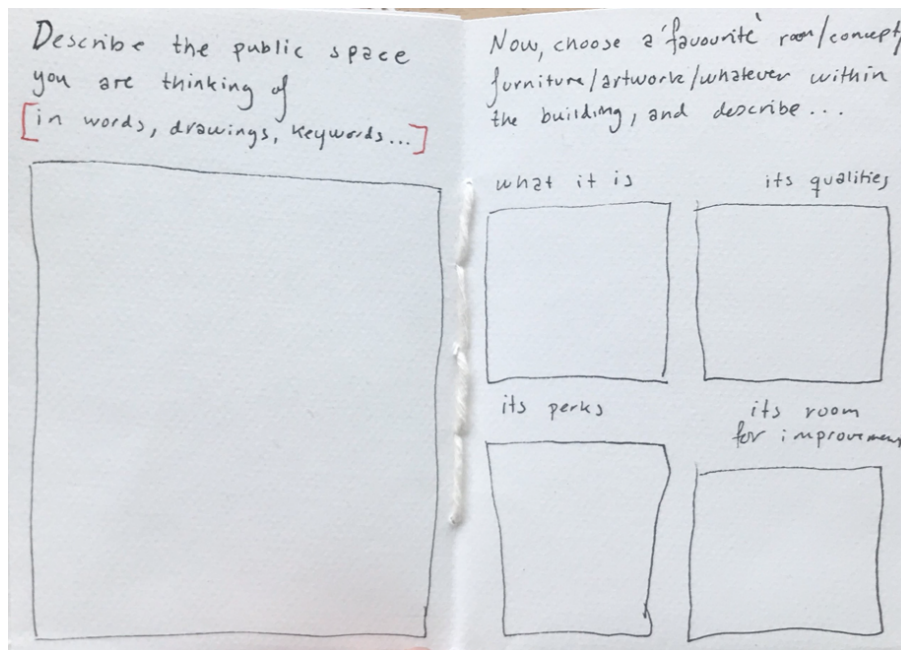 Describe the public space
you are thinking of
[in words, drawings, keywords...]
Now, choose a 'favourite' room/concept/
furniture/artwork/whatever within
the building, and describe...
what it is
its qualities
its perks
its room
for improvement